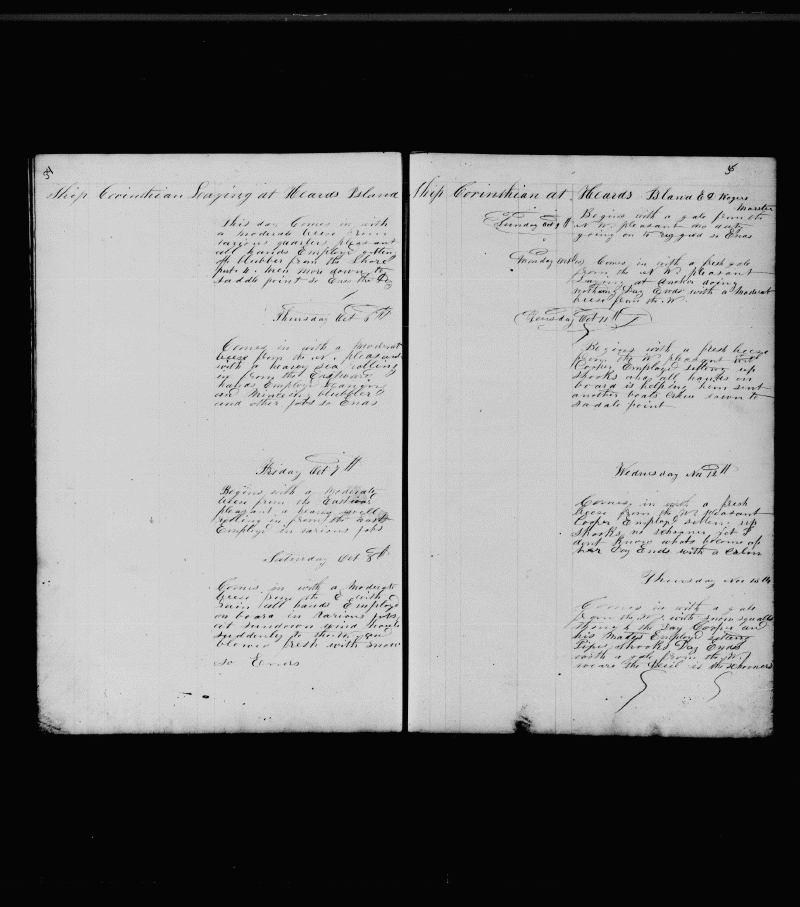 34
Ship Corinthian Laying at Heards Island
This day Comes in with
a moderate breese from
various quarters pleasant
all hands Employd getten
of blubber from the Shore
put 4 men more down to
Saddle point so Ens the Day
Thursday Oct 6th
Comes in with a moderat
breese from the N. pleasant
with a heavey sea rolling
in from the Eastward
hands Employd
an minceing blubber
and other jobs so Ends
Friday Oct 7th
Begins with a moderate
breese from the Eastward
pleasant a heavy swell
rolling in from the
Employd in various jobs
Saturday Oct 8th
Comes in with a moderate
breese from the E with
rain all hands Employd
on board in various jobs
at sundown wind
suddenly to the and
blowed fresh with snow
so Enders
35
Ship Corinthian at Heards Island E D Rogers
Master
Sunday Oct 9th
Begins with a gale from the
N W. pleasant no duty
going on to reguard so Ends
Monday Oct 10
Comes in with a fresh gale
from the N W. pleasant
Laying at anchor doing
nothing Day Ends with a moderat
breese from the W.
Tuesday Oct 11th
Begins with a fresh breeze
from the W pleasant
Cooper Employd setting up
shooks and all hands on
board is helping him sent
another boats crew down to
sadale point
Wednesday Nov 12th
Comes in with a fresh
breese from the W. pleasant
Cooper Employd setting up
shooks no schooner yet I
dont know whats become of
her Day Ends with a calm
Thursday Nov 13th
Comes in with a gale
from the with snow squalls
through the Day Cooper and
his mates Employd setting
Pipe shooks Day Ends
with a gale from the W.
weare the Devil is the schooners